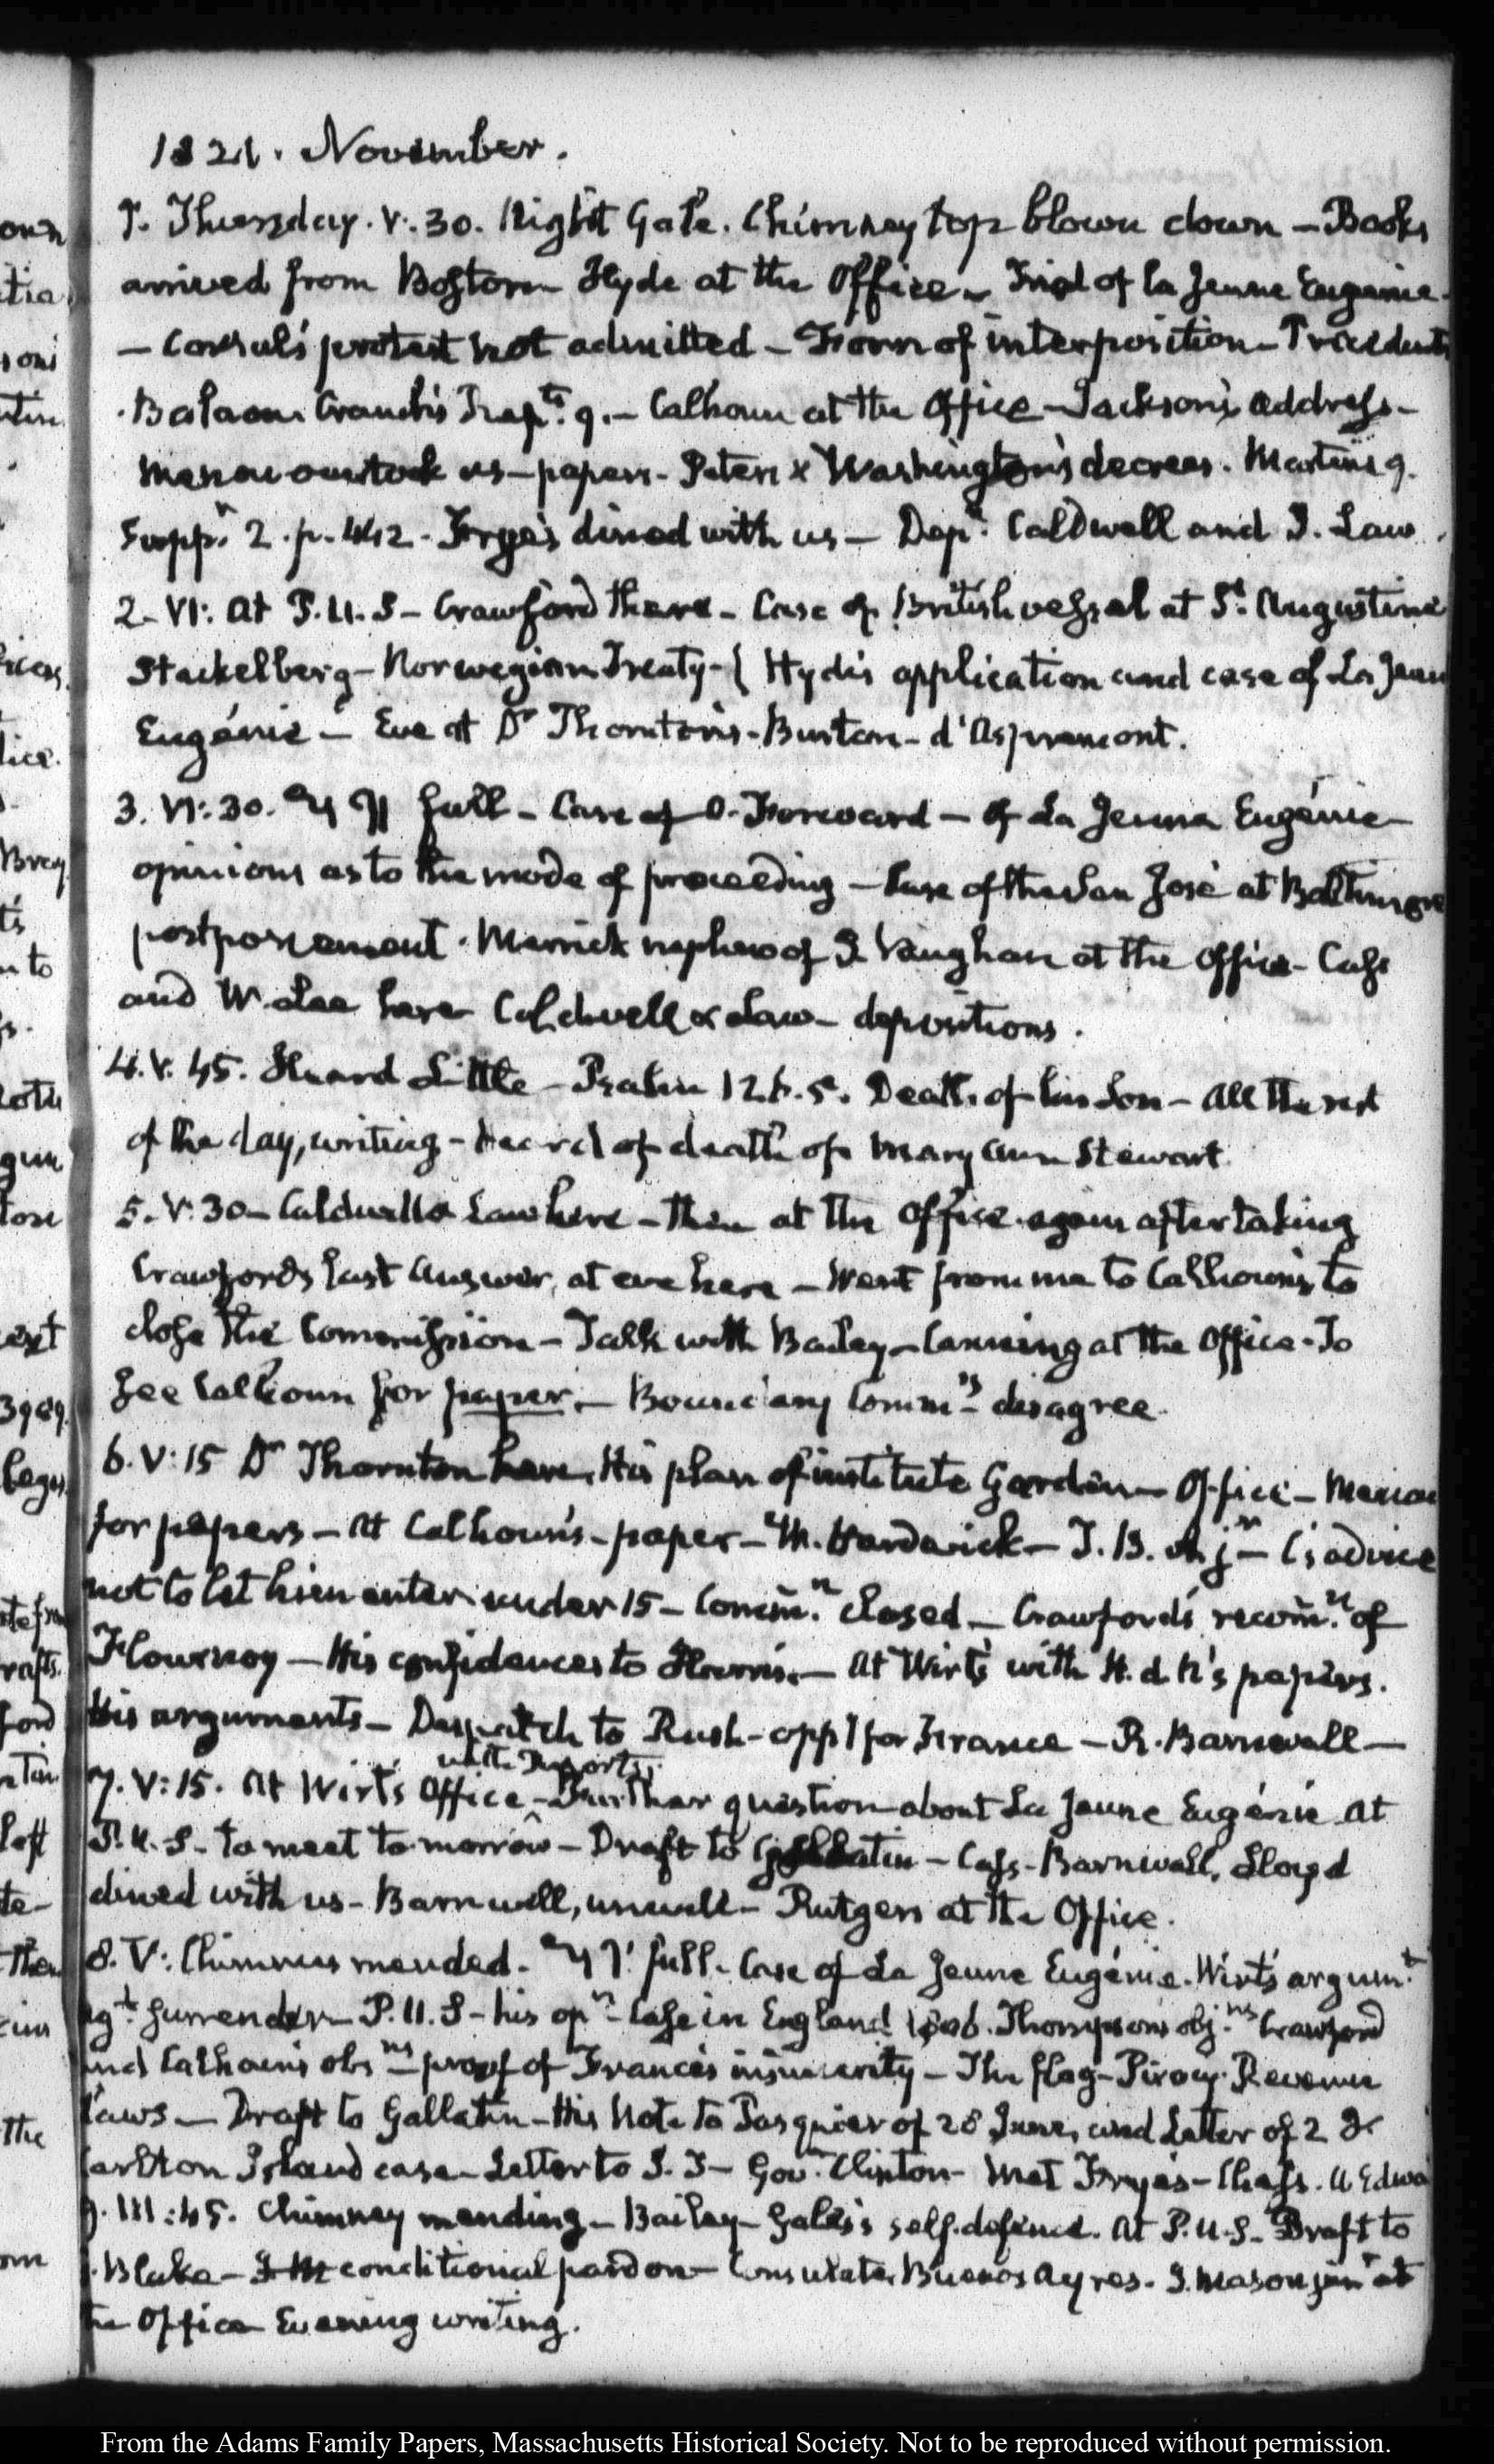 1821. November.
1. Thursday. V: 30. Night Gale. Chimney top blown down – Books
arrived from Boston – Hyde at the Office – Trial of la Jeune Eugenie
– Consul's protest not admitted – Form of interposition – Precedents
Cranch's 9. – Calhoun at the Office – Jackson's address –
overtook us – papers – Peters & Washington's decrees. Martens 9.
Supp.t 2. p. 442 – Frye's dined with us – Dep.s Caldwell and J. Law
2. VI: At P.U.S – Crawford there – Case of British vessel at St. Augustine
Stackelberg – Norwegian Treaty – Hyde's application and case of La Jeune
Eugénie – Eve at Dr Thornton's – Burton – d'Aspremont.
3. VI: 30. full – Case of – of La Jeune Eugénie
opinions as to the mode of proceeding – Case of the San José at Baltimore
postponement. Merrick nephew of J. Vaughan at the Office – Cass
and W. Lee here Caldwell & Law – depositions.
4. V. 45. Heard Little – Psalm 126. 5. Death of his Son – All the rest
of the day, writing – heard of death of Mary Ann Stewart.
5. V: 30 – Caldwell & Law here – then at the Office again after taking
Crawford's last answer, at eve here – Went from me to Calhoun's to
close the Commission – Talk with Bailey – Canning at the Office – To
see Calhoun for paper. – Boundary Comm.rs disagree.
6. V: 15 Dr Thornton here, His plan of institute Garden – Office –
for papers – at Calhoun's – paper – Hardwick – advice
not to let him enter under 15 – Comm.n closed – Crawford's recom.n of
Flournoy – His confidences to – At Wirt's with H. d N's papers.
His arguments – Despatch to Rush – for France – R. Barnwall –
with Deports.
7. V: 15. At Wirt's Office – Further question about La Jeune Eugénie At
P.U.S – to meet to morrow – Draft to Gallatin – Cass – Barnwall, Lloyd
dined with us – Barnwell, unwell – Rutgers at the Office.
8. V: Chimneys mended. full – Case of La Jeune Eugénie. Wirt's argum.t
ag.t surrender – P.U.S – his op.n – Case in England 1806. Thompson's obj.ns Crawford
and Calhoun's obs.ns – proof of France's insincerity – The flag – Piracy – Revenue
Laws – Draft to Gallatin – His Note to Pasquier of 28 June, and Letter of 2
Carlton Island case – Letter to – Gov.r Clinton – Met Frye's – Chess.
9. III: 45. Chimney mending – Bailey – Gales's self defence. At P.U.S – Draft to
Blake – conditional pardon – Consulate, Buenos Ayres. J. Mason jun.r at
the Office Evening writing.
From the Adams Family Papers, Massachusetts Historical Society. Not to be reproduced without permission.